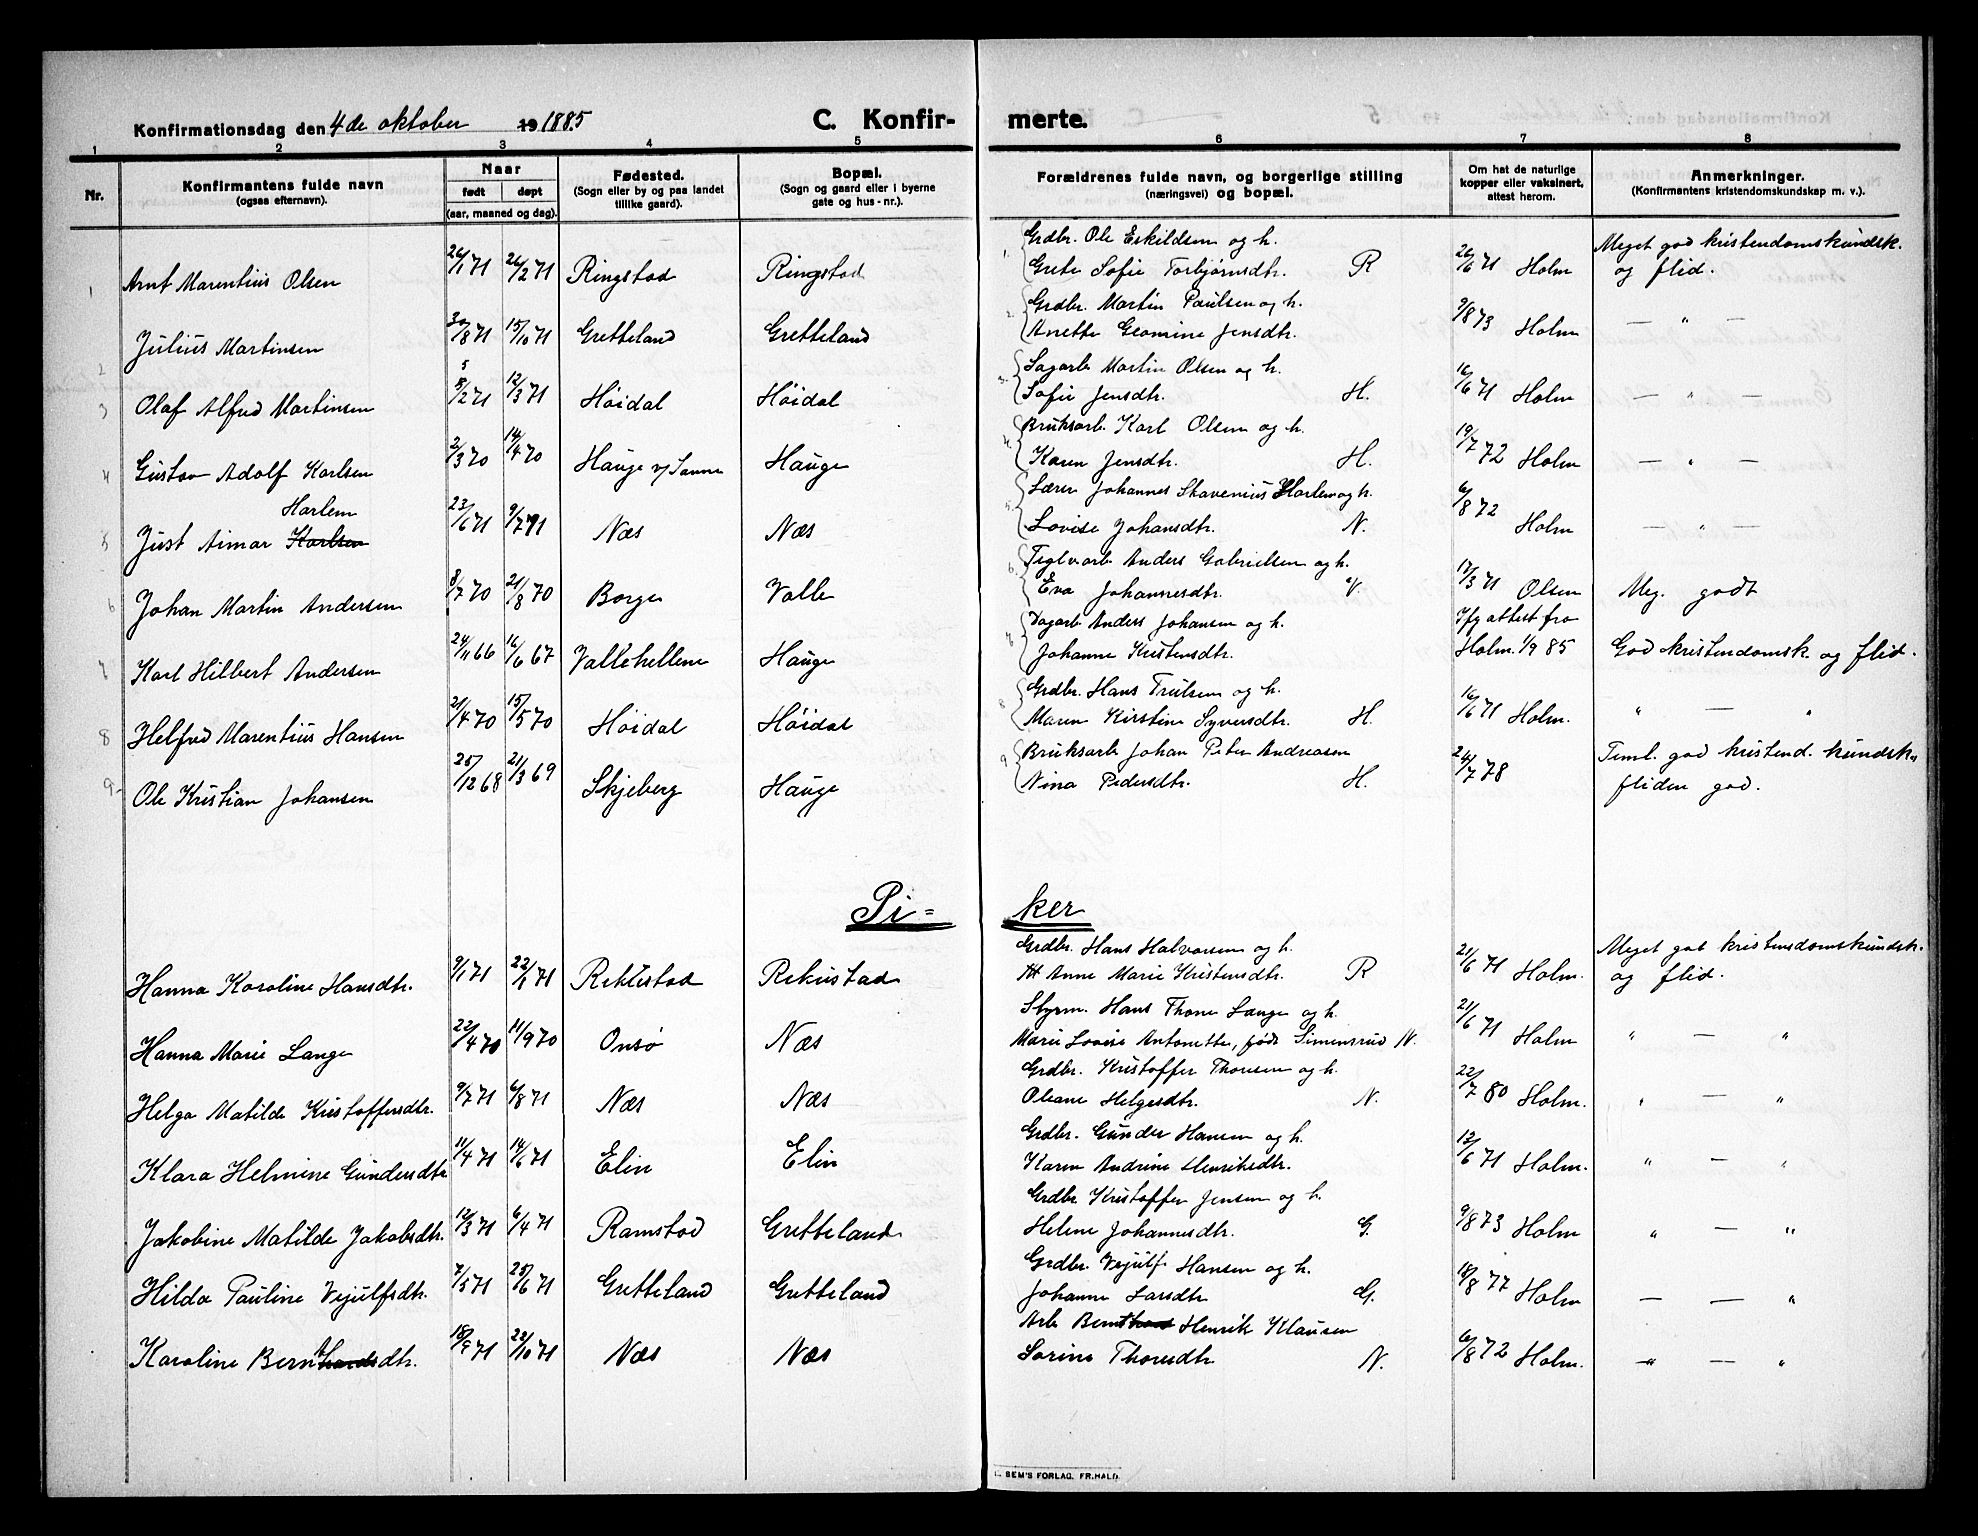 Konfirmationsdag den 4de oktober 19 1885 C. Konfir- merte.
1 2 3 4 5 6 7 8
Nr. Konfirmantens fulde navn (ogsaa efternavn). Naar født døpt (aar, maaned og dag). Fødested. (Sogn eller by og paa landet tillike gaard). Bopæl. (Sogn og gaard eller i byerne gate og hus-nr.). Forældrenes fulde navn, og borgerlige stilling (næringsvei) og bopæl. Om hat de naturlige kopper eller vaksinert, attest herom. Anmerkninger. (Konfirmantens kristendomskundskap m. v.).
1. Grdbr. Ole Eskildsen og h. Meget god kristendomskundsk.
1 Arnt Marentius Olsen 26/1 71 26/2 71 Ringstad Ringstad Grete Sofie Torbjørnsdtr. R 26/6 71 Holm og flid.
2. Grdbr. Martin Paulsen og h.
2 Julius Martinsen 30/8 71 15/10 71 Gretteland Gretteland Anette Geomine Jensdtr. 9/8 73 Holm — " —
3. Sagarb. Martin Olsen og h.
3 Olaf Alfred Martinsen 5/2 71 12/3 71 Høidal Høidal Sofie Jensdtr. H. 16/6 71 Holm — " —
4. Bruksarb. Karl Olsen og h.
4 Gustav Adolf Karlsen 2/3 70 14/4 70 Hauge v/ Sanne Hauge Karen Jensdtr. H. 19/7 72 Holm — " —
Harlem 5. Lærer Johannes Skavenius Harlem og h.
5 Just Aimar Karlsen 23/6 71 9/7 71 Næs Næs Lovise Johansdtr. N. 6/8 72 Holm — " —
6. Teglvarb. Anders Gabrielsen og h.
6 Johan Martin Andersen 8/7 70 21/8 70 Borge Valle Eva Johannesdtr. V. 17/3 71 Olsen Meg. godt
7. Dagarb. Anders Johansen og h. Ifg attest fra
7 Karl Hilbert Andersen 24/11 66 16/6 67 Vallehellene Hauge Johanne Kristensdtr. Holm 1/9 85 God kristendomsk. og flid.
8. Grdbr. Hans Trulsen og h.
8 Helfred Marentius Hansen 21/4 70 15/5 70 Høidal Høidal Maren Kirstine Syversdtr. H. 16/6 71 Holm. " — "
9 Bruksarb. Johan Peter Andreasen Teml. god kristend. kundsk.,
9- Ole Kristian Johansen 25/12 68 21/3 69 Skjeberg Hauge Nina Pedersdtr. H. 24/7 78 fliden god.
Pi= ker
Grdbr. Hans Halvorsen og h. Meget god kristensdomskundsk.
Hanna Karoline Hansdtr. 9/1 71 22/1 71 Rekustad Rekustad Anne Marie Kristensdtr. R 21/6 71 Holm. og flid.
Styrm. Hans Thone Lange og h.
Hanna Marie Lange 22/4 70 11/9 70 Onsø Næs Marie Lovise Antonette, født Simensrud N. 21/6 71 Holm " — "
Grdbr. Kristoffer Thonesen og h.
Helga Matilde Kristoffersdtr. 9/7 71 6/8 71 Næs Næs Oleane Helgesdtr. N. 22/7 80 Holm. " — "
Grdbr. Gunder Hansen og h.
Klara Helmine Gundersdtr 11/4 71 14/6 71 Elin Elin Karen Andrine Henriksdtr. 12/6 71 Holm. " — "
Grdbr Kristoffer Jensen og h.
Jakobine Matilde Jakobsdtr. 12/3 71 6/4 71 Ramstad Gretteland Helene Johannesdtr. G. 9/8 73 Holm " — "
Grdbr. Vejulf Hansen og h.
Hilda Pauline Vejulfsdtr. 7/5 71 25/6 71 Gretteland Gretteland Johanne Larsdtr G. 18/8 77 Holm — — "
Arb Bernt Henrik Klausen
Karoline Berntsdtr. 18/9 71 22/10 71 Næs Næs Sorine Thoresdtr N. 6/8 72 Holm. — " — "
SEM'S FORLAG. FR.HALD.